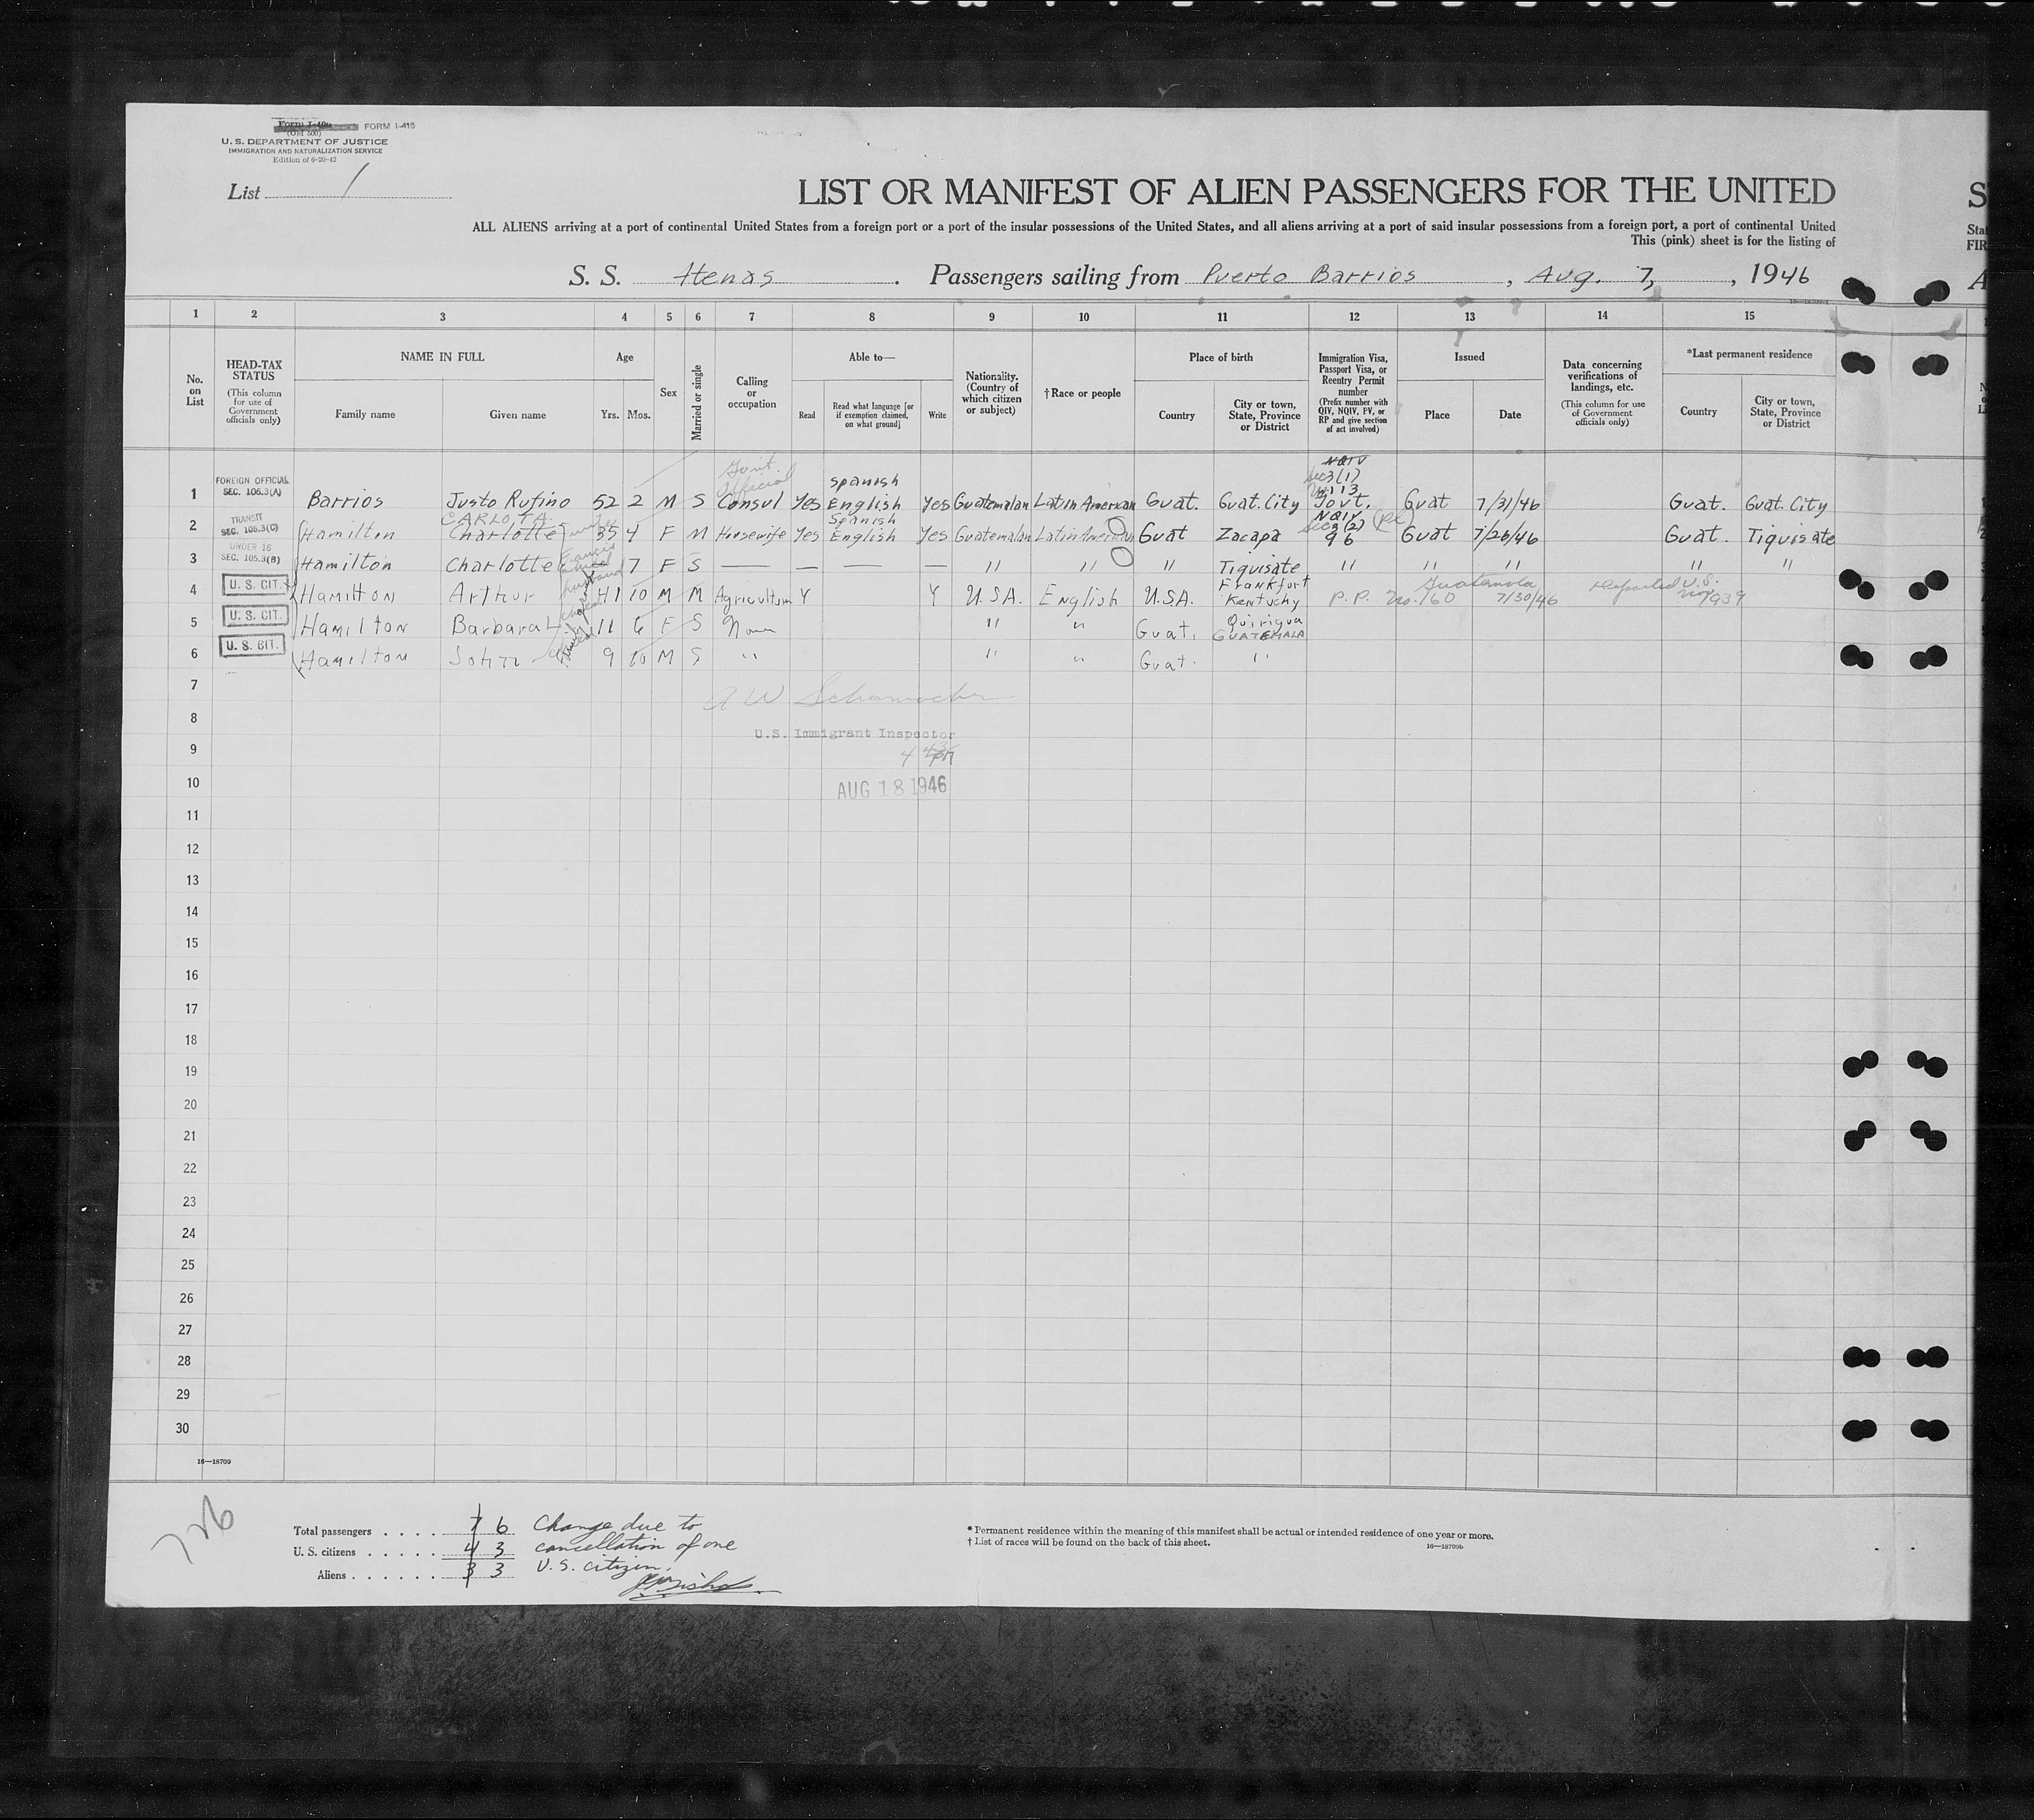 Form I-400 FORM I-415
(Old 500)
U. S. DEPARTMENT OF JUSTICE
IMMIGRATION AND NATURALIZATION SERVICE
Edition of 6-20-42
List 1
LIST OR MANIFEST OF ALIEN PASSENGERS FOR THE UNITED S
ALL ALIENS arriving at a port of continental United States from a foreign port or a port of the insular possessions of the United States, and all aliens arriving at a port of said insular possessions from a foreign port, a port of continental United Stat
This (pink) sheet is for the listing of FIR
S. S. Atenas . Passengers sailing from Puerto Barrios , Aug. 7, , 1946 A
1 2 3 4 5 6 7 8 9 10 11 12 13 14 15
No. on List
HEAD-TAX STATUS (This column for use of Government officials only)
NAME IN FULL Family name Given name
Age Yrs. Mos.
Sex
Married or single
Calling or occupation
Able to— Read Read what language [or if exemption claimed, on what ground] Write
Nationality. (Country of which citizen or subject)
†Race or people
Place of birth Country City or town, State, Province or District
Immigration Visa, Passport Visa, or Reentry Permit number (Prefix number with QIV, NQIV, PV, or RP and give section of act involved)
Issued Place Date
Data concerning verifications of landings, etc. (This column for use of Government officials only)
*Last permanent residence Country City or town, State, Province or District
Govt. NQIV
FOREIGN OFFICIAL Official Spanish Sec 3(1)
SEC. 105.3(A) 113
1 Barrios Justo Rufino 52 2 M S Consul Yes English Yes Guatemalan Latin American Guat. Guat. City Govt. Guat 7/31/46 Guat. Guat. City
TRANSIT CARLOTA Spanish NQIV
2 SEC. 105.3(C) Hamilton Charlotte 35 4 F M Housewife Yes English Yes Guatemalan Latin American Guat Zacapa Sec 3(2) 96 Guat 7/26/46 Guat. Tiquisate
UNDER 16
3 SEC. 105.3(B) Hamilton Charlotte 7 F S — — — — " " " Tiquisate " " " " "
4 U. S. CIT. Hamilton Arthur 41 10 M M Agriculture Y Y U.S.A. English U.S.A. Frankfort Kentucky P.P. No. 160 Guatemala 7/30/46 Departed U.S. 1939
5 U. S. CIT. Hamilton Barbara 11 6 F S None " " Guat. Quirigua GUATEMALA
6 U. S. CIT. Hamilton John 9 10 M S " " " Guat. "
7
8
U.S. Immigrant Inspector
9
10
AUG 18 1946
11
12
13
14
15
16
17
18
19
20
21
22
23
24
25
26
27
28
29
30
16—18709
726
Total passengers . . . . 7 6 Change due to
U. S. citizens . . . . . 4 3 cancellation of one
Aliens . . . . . . 3 3 U.S. citizen.
* Permanent residence within the meaning of this manifest shall be actual or intended residence of one year or more.
† List of races will be found on the back of this sheet.
16—18709b